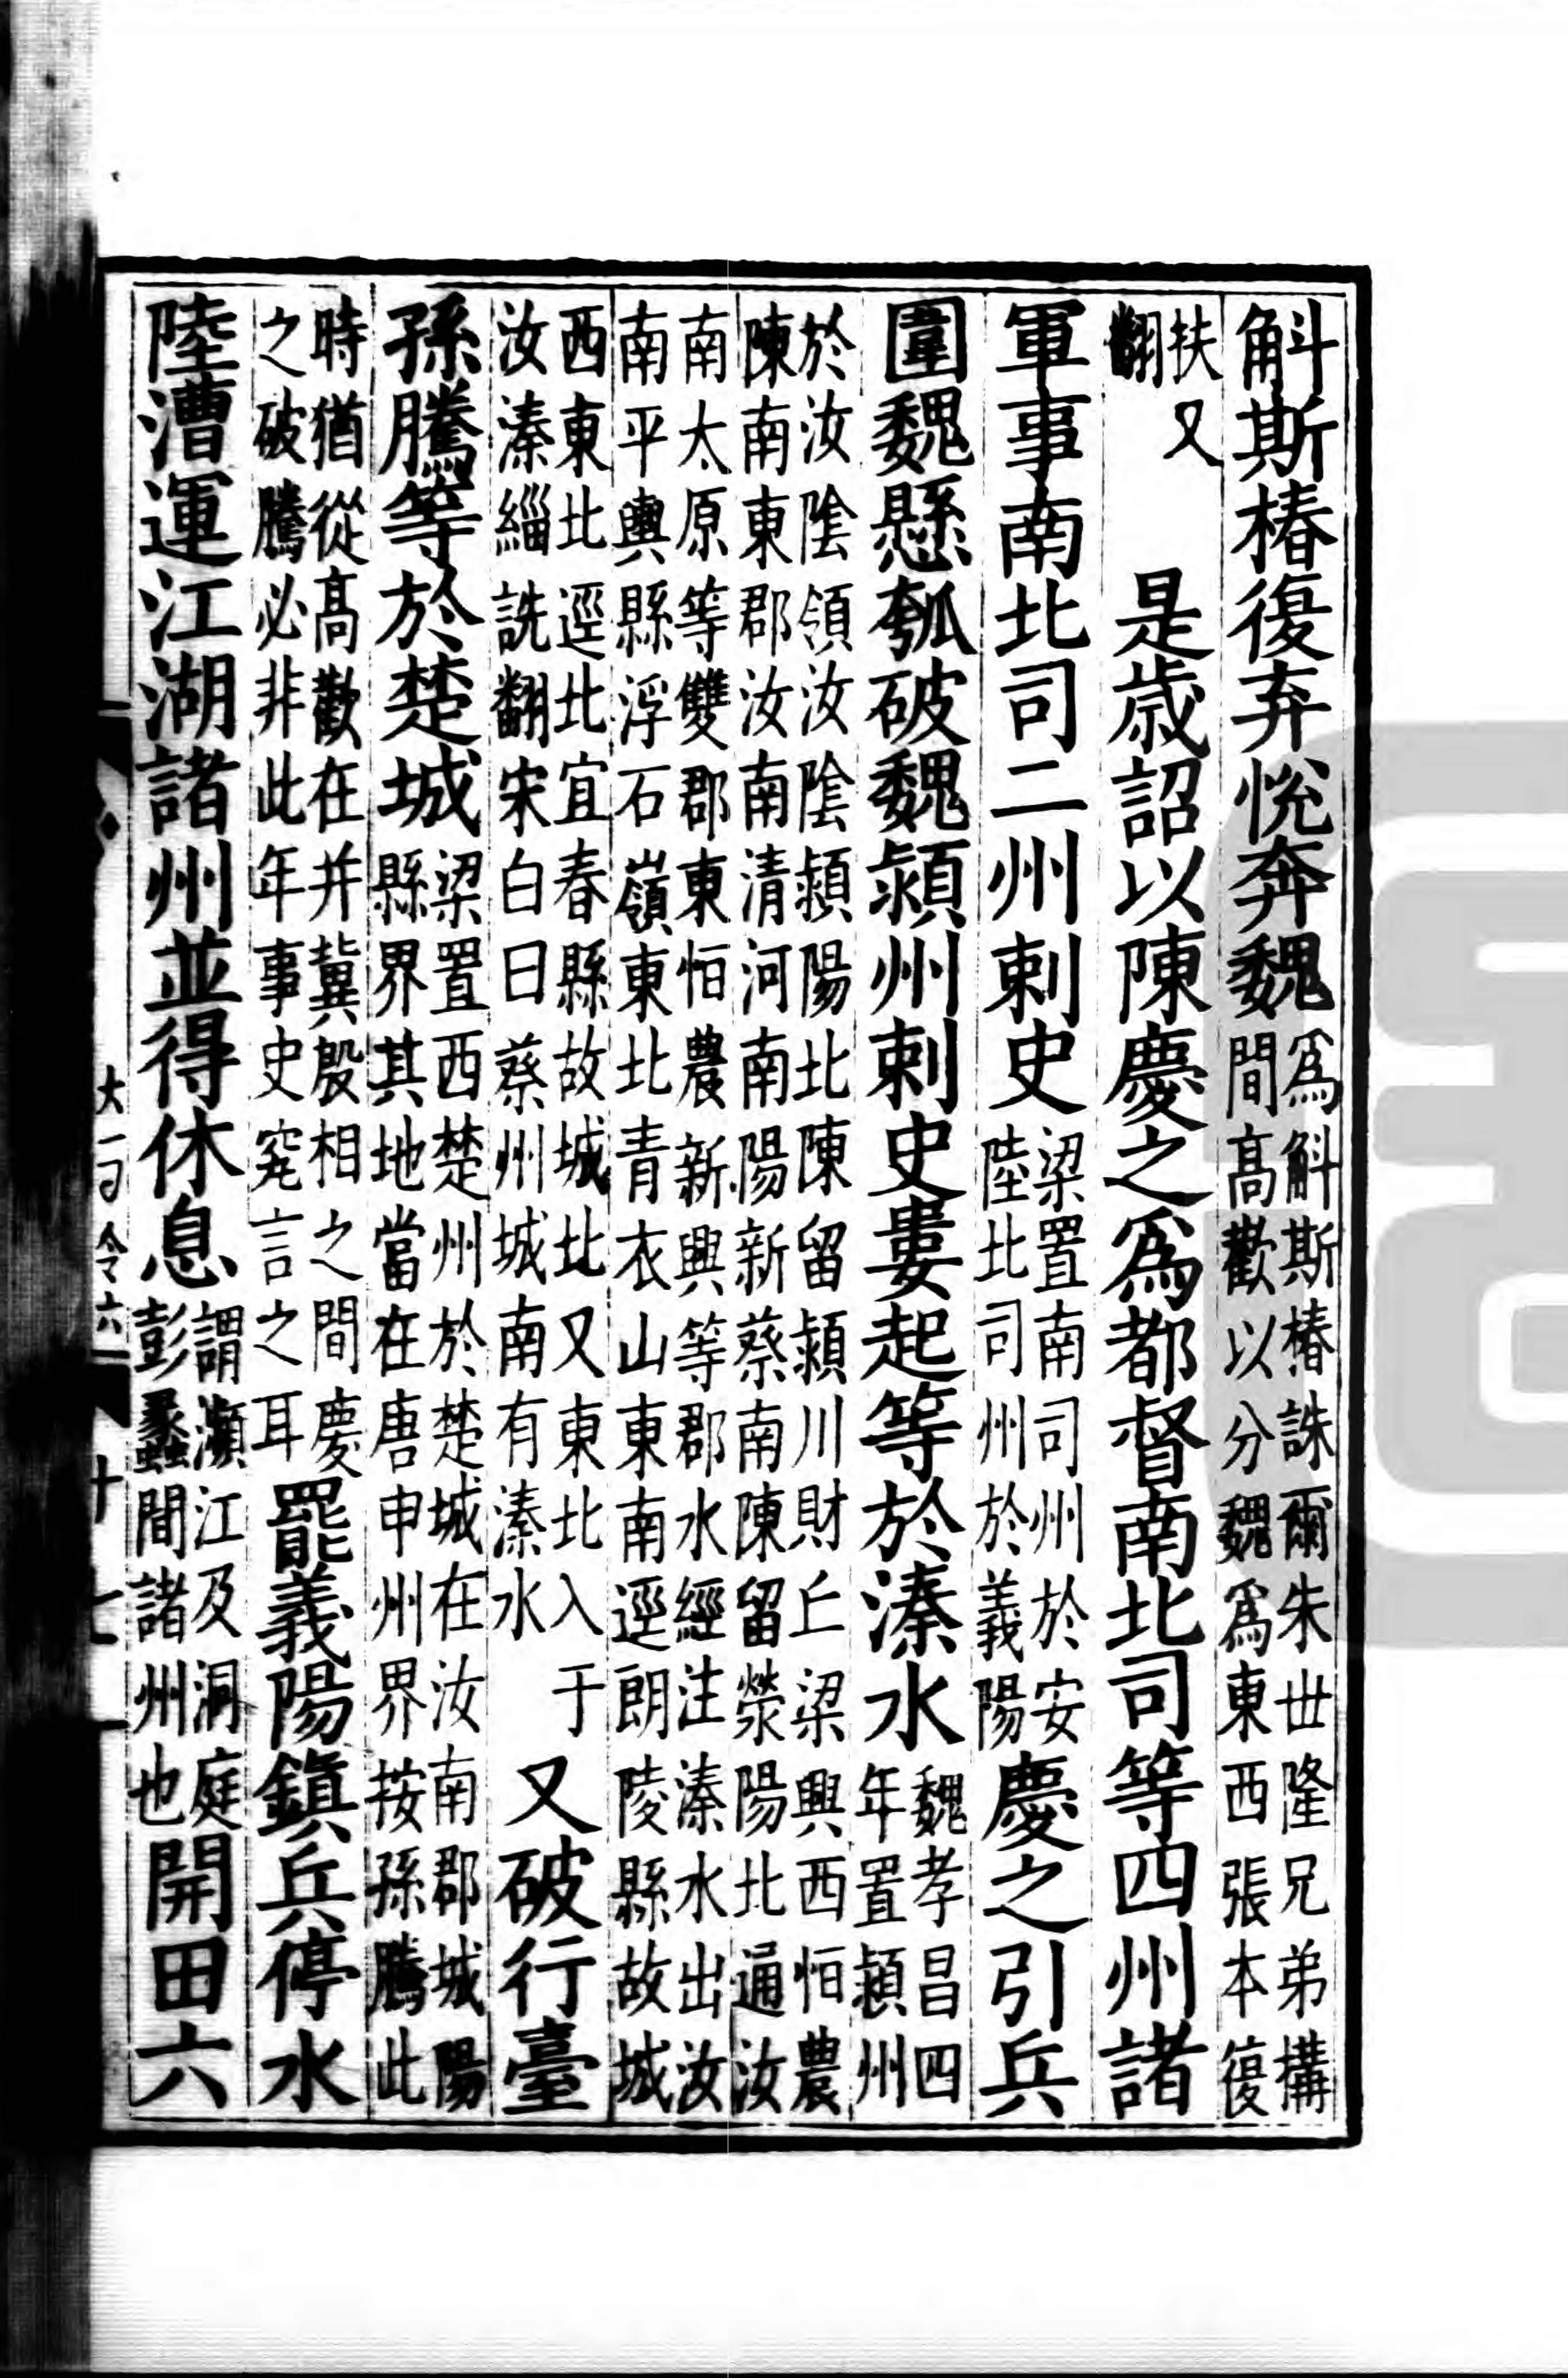 斛斯椿復弃悅奔魏爲斛斯椿誅爾朱世隆兄弟構間高歡以分魏爲東西張本復
扶又翻是歲詔以陳慶之爲都督南北司等四州諸
軍事南北司二州刺史梁置南司州於安陸北司州於義陽慶之引兵
圍魏懸瓠破魏潁州刺史婁起等於溱水魏孝昌四年置潁州
於汝陰領汝陰潁陽北陳留潁川財丘梁興西恒農陳南東郡汝南清河南陽新蔡南陳留滎陽北通汝
南太原等雙郡東恒農新興等郡水經注溱水出汝南平輿縣浮石嶺東北青衣山東南逕朗陵縣故城
西東北逕北宜春縣故城北又東北入于汝溱緇詵翻宋白曰蔡州城南有溱水又破行臺
孫騰等於楚城梁置西楚州於楚城在汝南郡城陽縣界其地當在唐申州界按孫騰此
時猶從高歡在并冀殷相之間慶之破騰必非此年事史究言之耳罷義陽鎮兵停水
陸漕運江湖諸州並得休息謂瀕江及洞庭彭蠡間諸州也開田六
十七